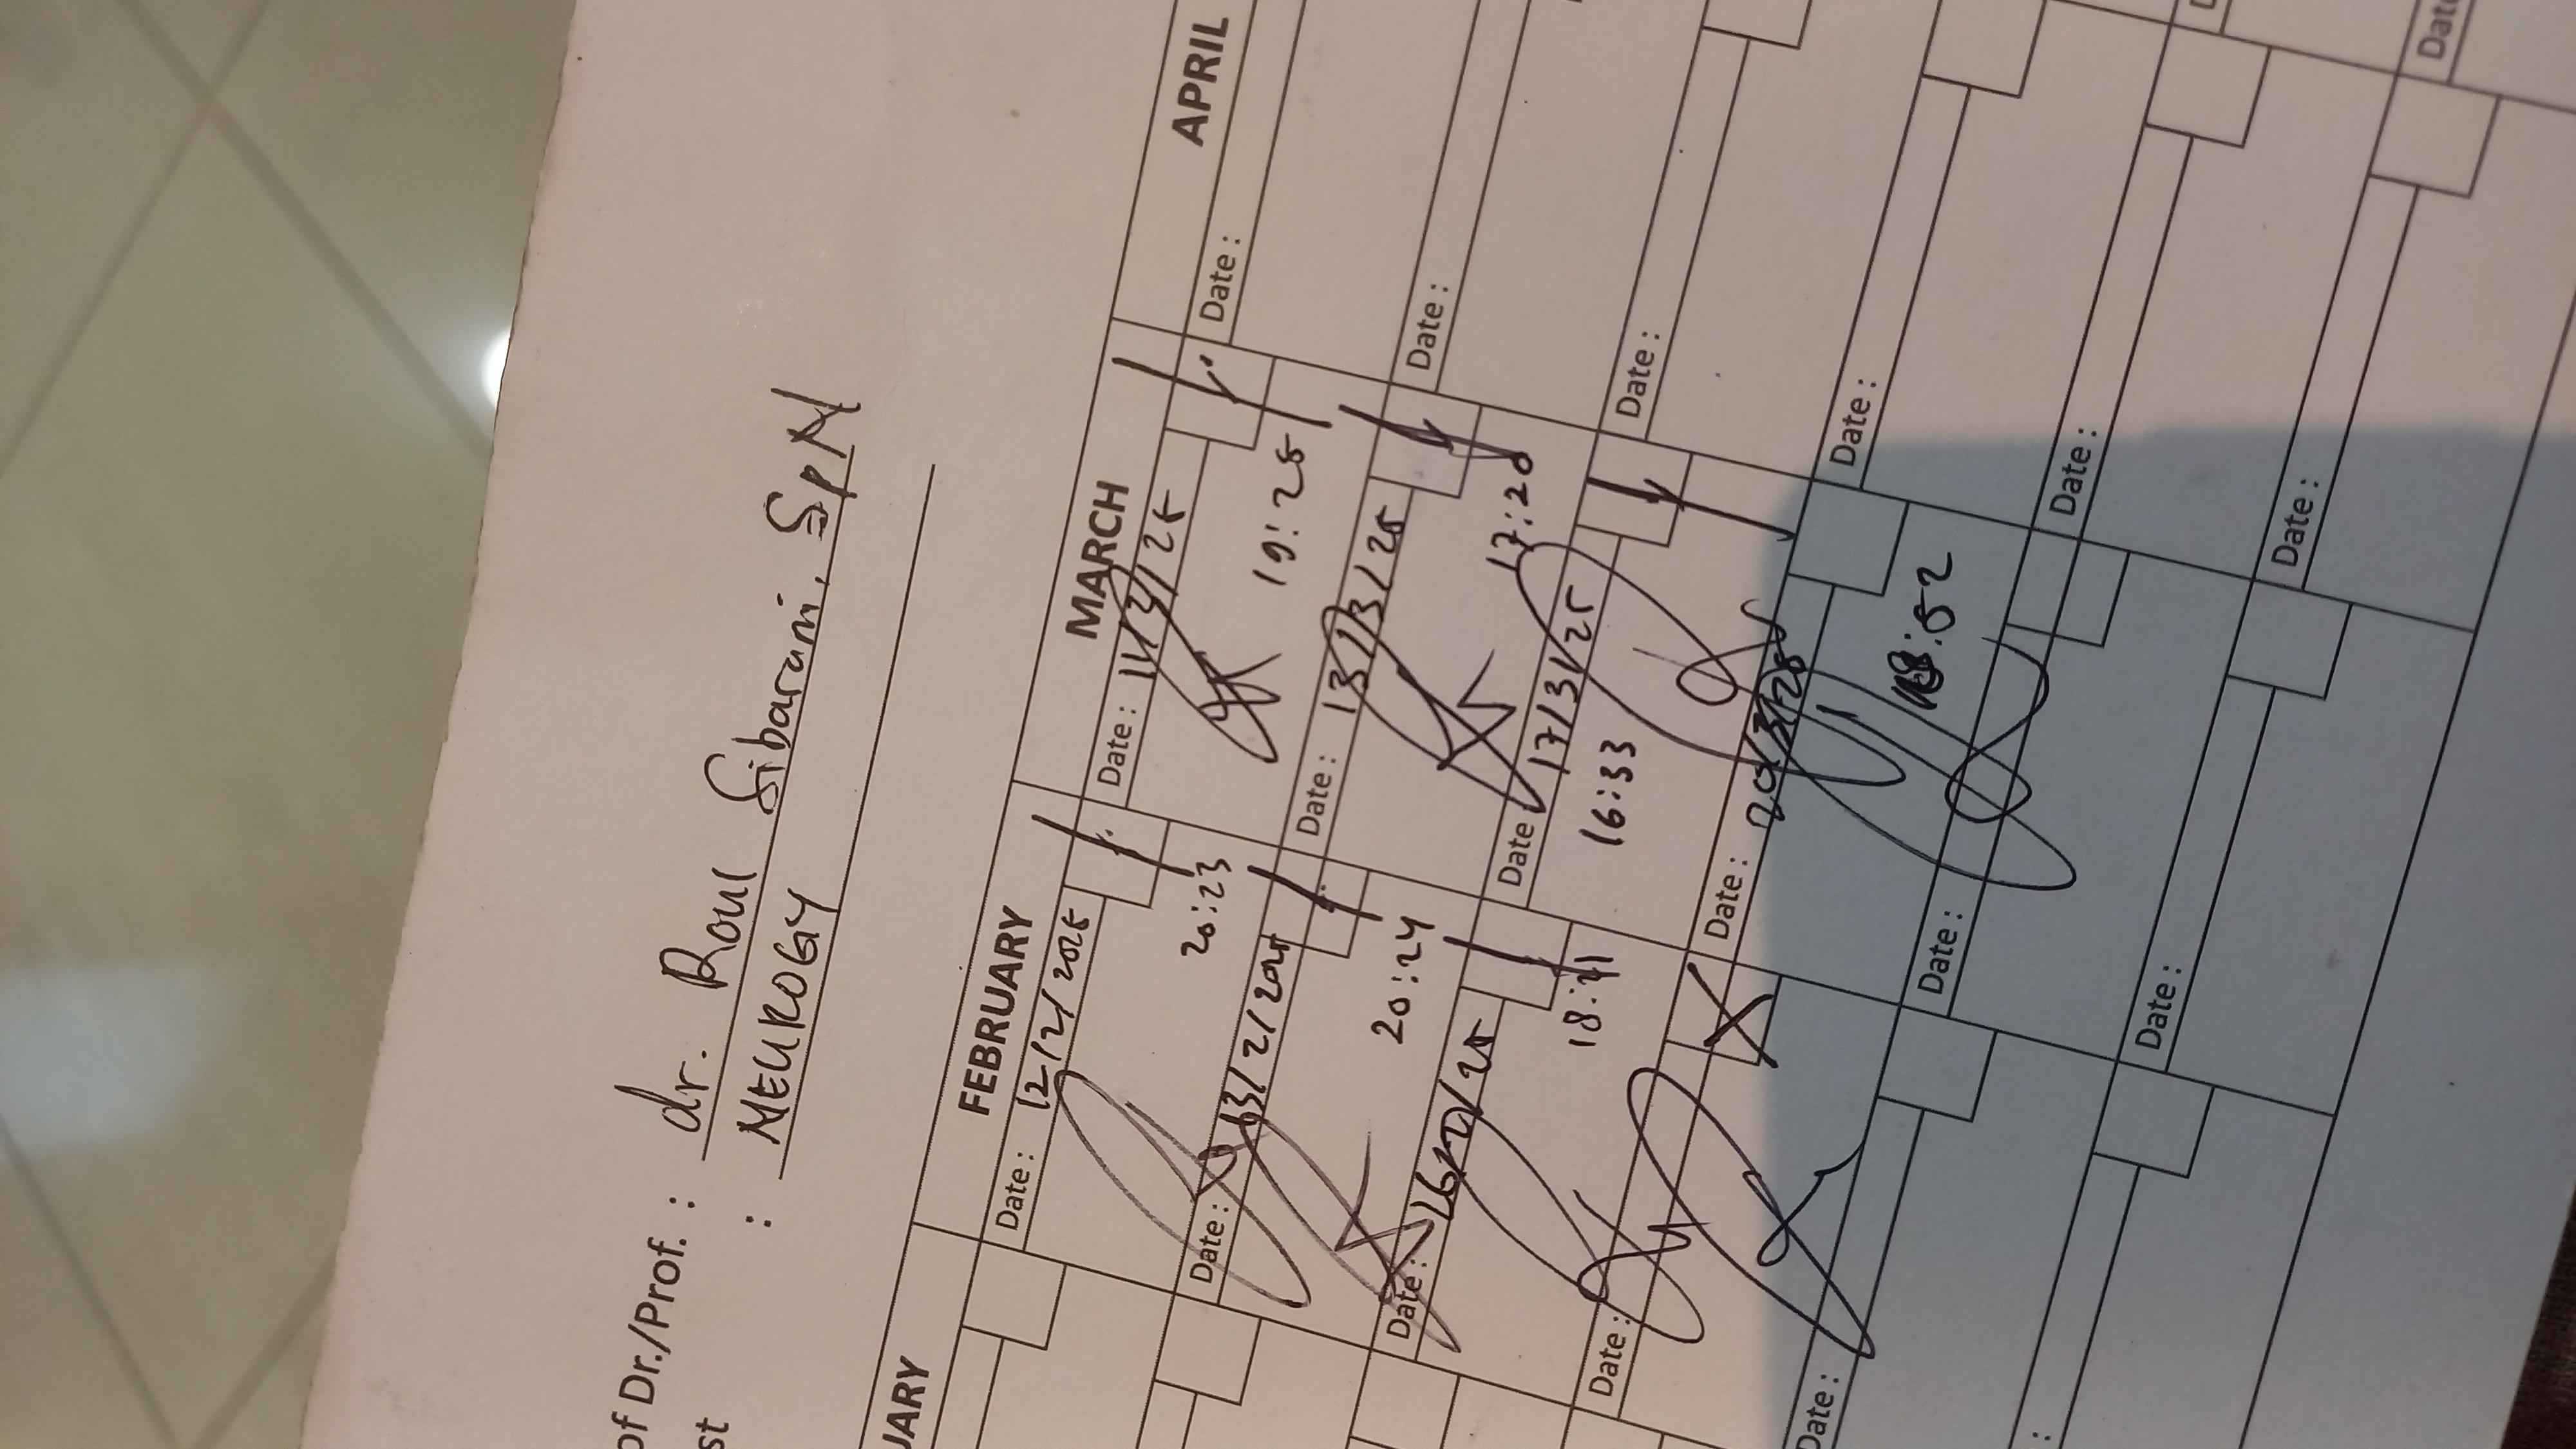 of Dr./Prof. : dr. Roul Sibarani, SpN
st : NEUROGY
UARY FEBRUARY MARCH APRIL
Date : 12/2/2025 Date : 11/3/25 Date :
20:23 19:25
Date : 13/2/2025 Date : 13/3/25 Date :
20:24 17:20
Date : 26/2/25 Date : 17/3/25 Date :
18:21 16:33
Date : Date : 20/3/25 Date :
18:52
Date : Date : Date : Date
: Date : Date :